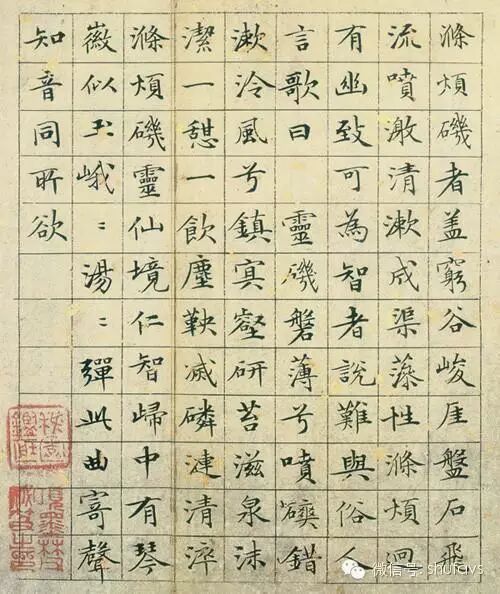 滌煩磯者盖窮谷峻厓盤石飛
流噴激清漱成渠藻性滌煩迴
有幽致可為智者說難與俗人
言歌曰 靈磯磐薄兮噴錯
漱泠風兮鎮冥壑研苔滋泉沫
潔一憇一飲塵鞅滅磷漣清淬
滌煩磯靈仙境仁智歸中有琴
徽似玉峨〻湯〻彈此曲寄聲
知音同所欲
微信号: shufavs